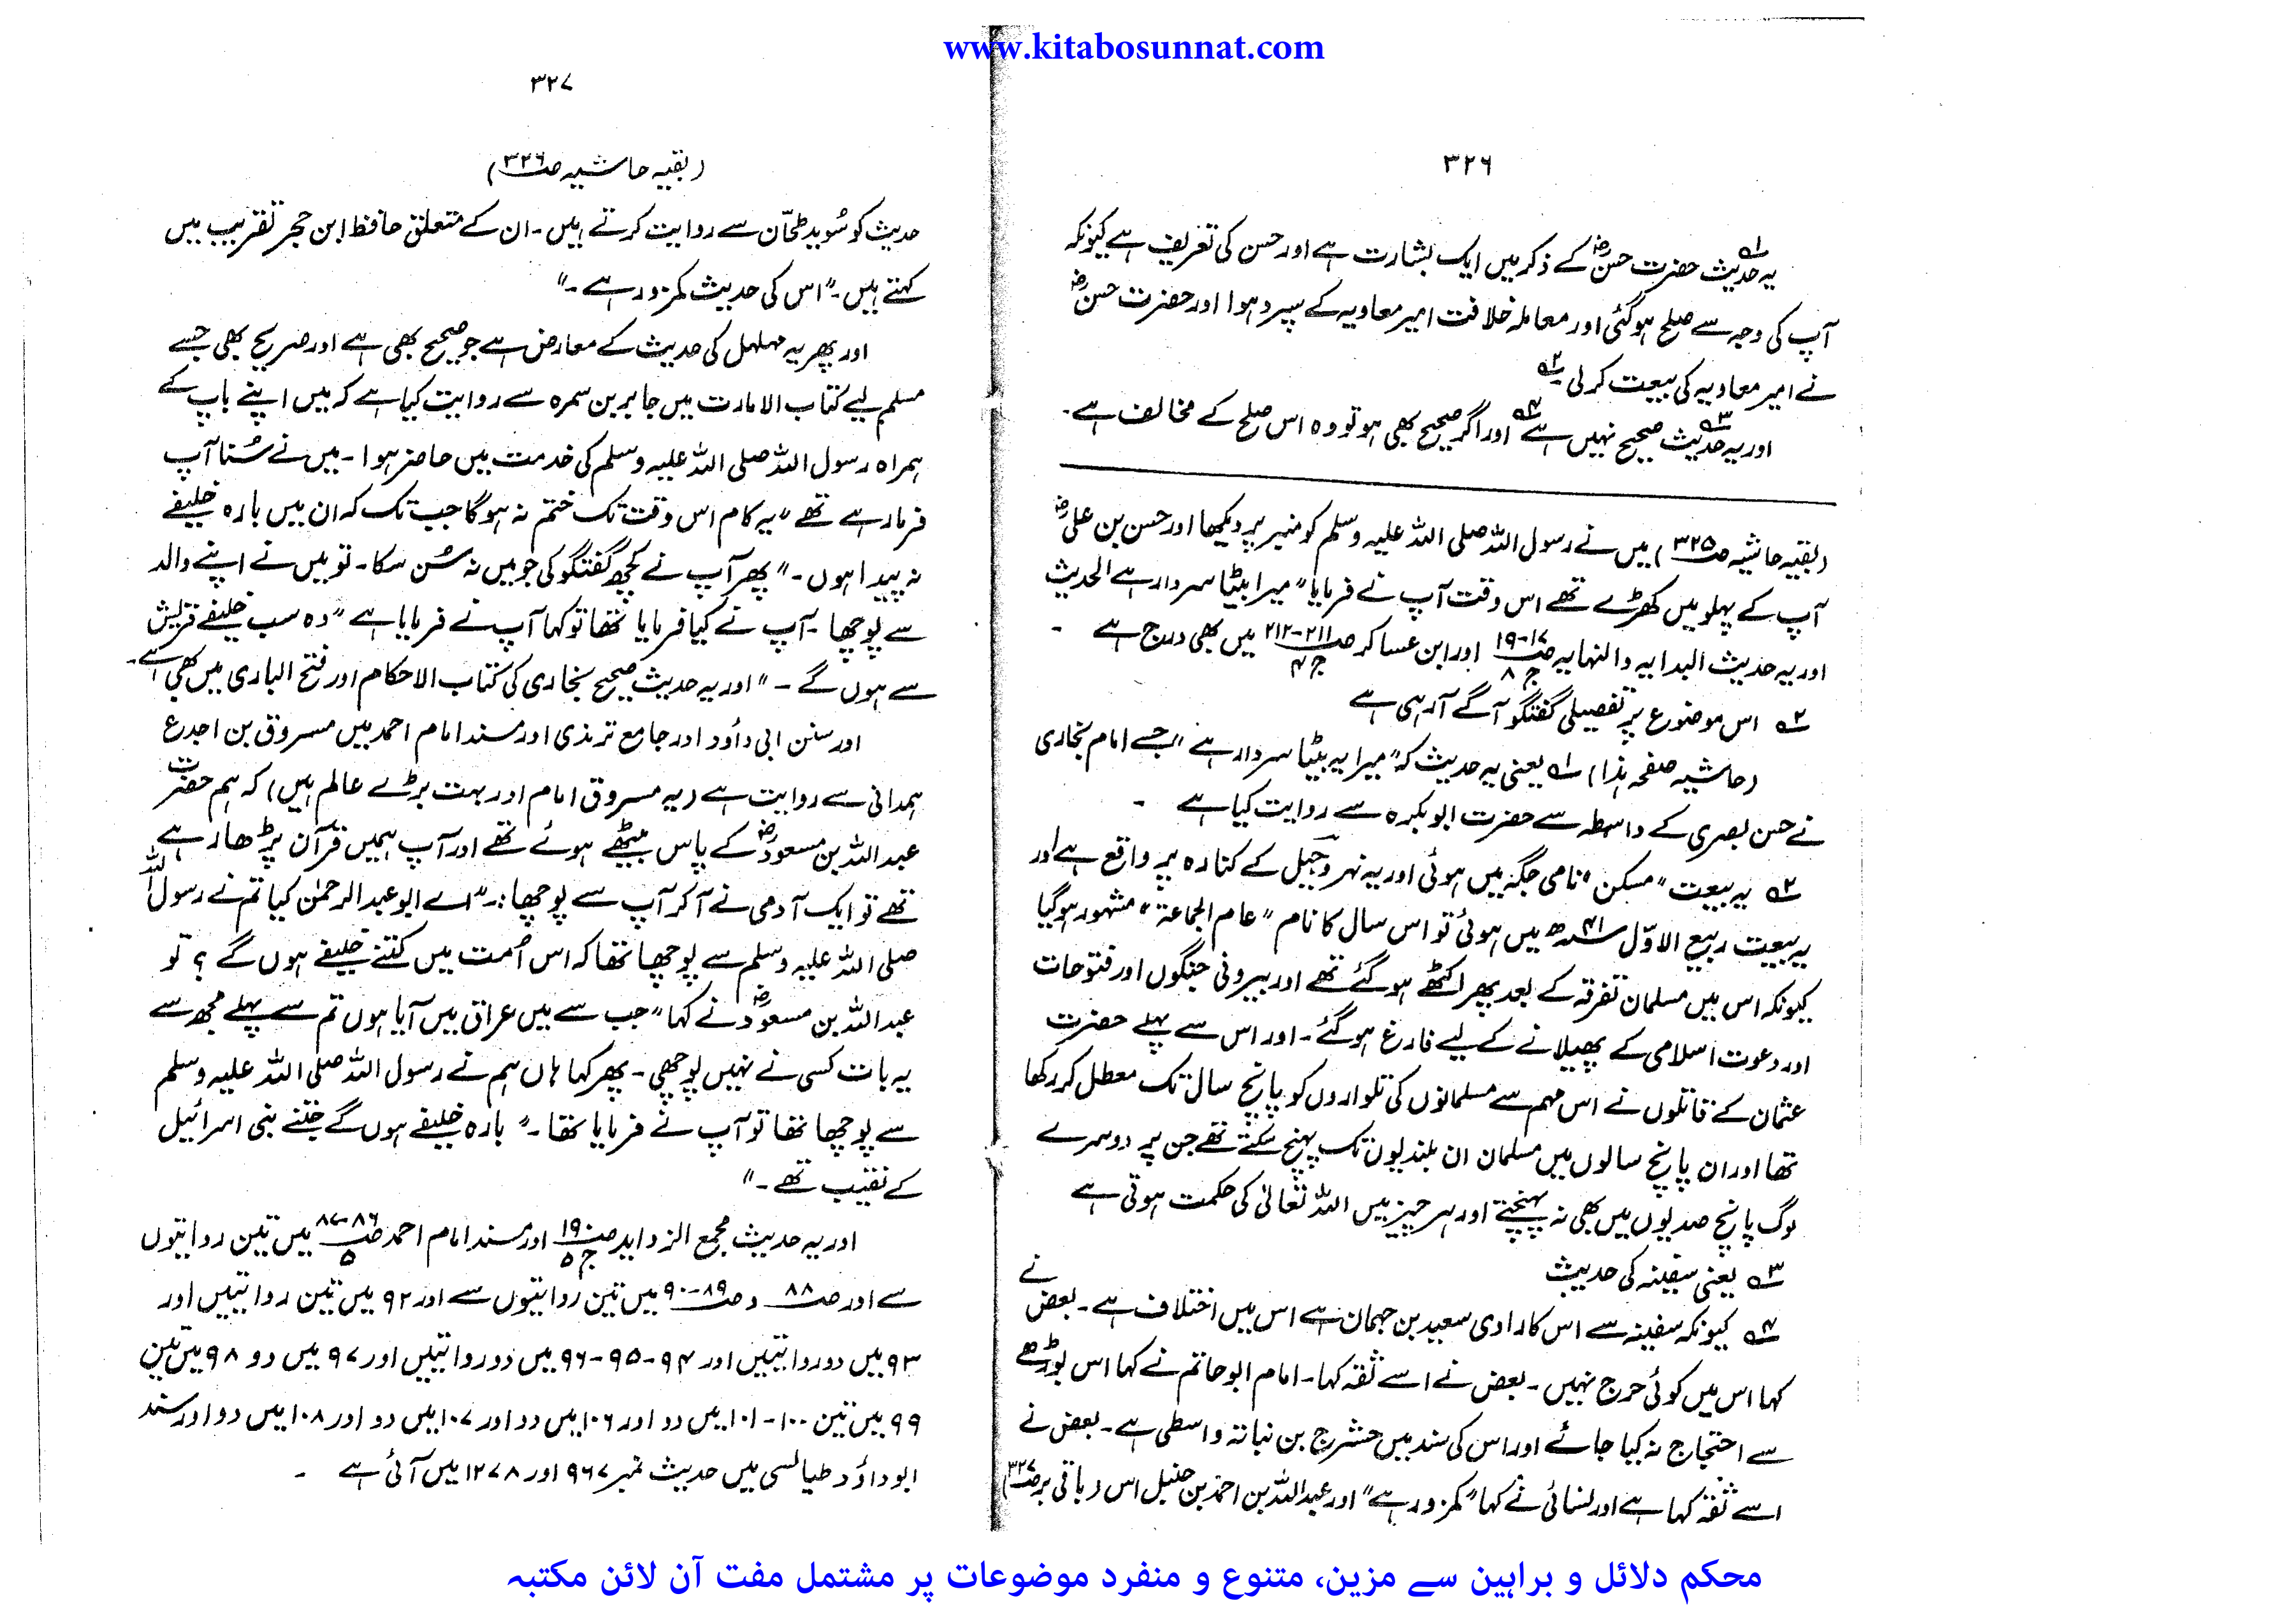 www.kitabosunnat.com
۳۲۶
یہ حدیث۱؎ حضرت حسنؓ کے ذکر میں ایک بشارت ہے اور حسن کی تعریف ہے کیونکہ
آپ کی وجہ سے صلح ہوگئی اور معاملہ خلافت امیر معاویہ کے سپرد ہوا اور حضرت حسنؓ
نے امیر معاویہ کی بیعت کر لی۔۲؎
اور یہ حدیث۳؎ صحیح نہیں ہے۴؎ اور اگر صحیح بھی ہو تو وہ اس صلح کے مخالف ہے۔
(بقیہ حاشیہ صـ۳۲۵) میں نے رسول اللہ صلی اللہ علیہ وسلم کو منبر پر دیکھا اور حسن بن علیؓ
آپ کے پہلو میں کھڑے تھے اس وقت آپ نے فرمایا "میرا بیٹا سردار ہے الحدیث
اور یہ حدیث البدایہ والنہایہ صـ۱۷-۱۹ ج ۸ اور ابن عساکر صـ۲۱۱-۲۱۲ ج ۴ میں بھی درج ہے۔
۲؎ اس موضوع پر تفصیلی گفتگو آگے آ رہی ہے
(حاشیہ صفحہ ہذا) ۱؎ یعنی یہ حدیث کہ "میرا یہ بیٹا سردار ہے" جسے امام بخاری
نے حسن بصری کے واسطہ سے حضرت ابوبکرہ سے روایت کیا ہے۔
۲؎ یہ بیعت "مسکن" نامی جگہ میں ہوئی اور یہ نہر دجیل کے کنارہ پر واقع ہے اور
یہ بیعت ربیع الاوّل ۴۱ھ میں ہوئی تو اس سال کا نام "عام الجماعۃ" مشہور ہوگیا
کیونکہ اس میں مسلمان تفرقہ کے بعد پھر اکٹھے ہو گئے تھے اور بیرونی جنگوں اور فتوحات
اور دعوت اسلامی کے پھیلانے کے لیے فارغ ہو گئے۔ اور اس سے پہلے حضرت
عثمان کے قاتلوں نے اس مہم سے مسلمانوں کی تلواروں کو پانچ سال تک معطل کر رکھا
تھا اور ان پانچ سالوں میں مسلمان ان بلندیوں تک پہنچ سکتے تھے جن پر دوسرے
لوگ پانچ صدیوں میں بھی نہ پہنچتے اور ہر چیز میں اللہ تعالیٰ کی حکمت ہوتی ہے
۳؎ یعنی سفینہ کی حدیث
۴؎ کیونکہ سفینہ سے اس کا راوی سعید بن جہمان ہے اس میں اختلاف ہے۔ بعض نے
کہا اس میں کوئی حرج نہیں۔ بعض نے اسے ثقہ کہا۔ امام ابوحاتم نے کہا اس بوڑھے
سے احتجاج نہ کیا جائے اور اس کی سند میں حشرج بن نباتہ واسطی ہے۔ بعض نے
اسے ثقہ کہا ہے اور نسائی نے کہا "کمزور ہے" اور عبداللہ بن احمد بن حنبل اس (باقی بر صـ۳۲۷)
۳۲۷
(بقیہ حاشیہ صـ۳۲۶)
حدیث کو سُوید طحّان سے روایت کرتے ہیں۔ ان کے متعلق حافظ ابن حجر تقریب میں
کہتے ہیں۔ "اس کی حدیث کمزور ہے۔"
اور پھر یہ مہلہل کی حدیث کے معارض ہے جو صحیح بھی ہے اور صریح بھی جسے
مسلم لیے کتاب الامارت میں جابر بن سمرہ سے روایت کیا ہے کہ میں اپنے باپ کے
ہمراہ رسول اللہ صلی اللہ علیہ وسلم کی خدمت میں حاضر ہوا۔ میں نے سُنا آپ
فرما رہے تھے "یہ کام اس وقت تک ختم نہ ہوگا جب تک کہ ان میں بارہ خلیفے
نہ پیدا ہوں۔" پھر آپ نے کچھ گفتگو کی جو میں نہ سُن سکا۔ تو میں نے اپنے والد
سے پوچھا۔ آپ نے کیا فرمایا تھا تو کہا آپ نے فرمایا ہے "وہ سب خلیفے قریش
سے ہوں گے۔" اور یہ حدیث صحیح بخاری کی کتاب الاحکام اور فتح الباری میں بھی ہے۔
اور سنن ابی داؤد اور جامع ترمذی اور مسند امام احمد میں مسروق بن اجدع
ہمدانی سے روایت ہے (یہ مسروق امام اور بہت بڑے عالم ہیں) کہ ہم حضرت
عبداللہ بن مسعودؓ کے پاس بیٹھے ہوئے تھے اور آپ ہمیں قرآن پڑھا رہے
تھے تو ایک آدمی نے آکر آپ سے پوچھا:۔ "اے ابو عبدالرحمٰن کیا تم نے رسول اللہ
صلی اللہ علیہ وسلم سے پوچھا تھا کہ اس اُمت میں کتنے خلیفے ہوں گے؟ تو
عبداللہ بن مسعودؓ نے کہا "جب سے میں عراق میں آیا ہوں تم سے پہلے مجھ سے
یہ بات کسی نے نہیں پوچھی۔ پھر کہا ہاں ہم نے رسول اللہ صلی اللہ علیہ وسلم
سے پوچھا تھا تو آپ نے فرمایا تھا۔" بارہ خلیفے ہوں گے جتنے بنی اسرائیل
کے نقیب تھے۔"
اور یہ حدیث مجمع الزوائد صـ۱۹ ج ۵ اور مسند امام احمد صـ۸۶-۸۷ ۵ میں تین روایتوں
سے اور صـ۸۸ و صـ۸۹-۹۰ میں تین روایتوں سے اور ۹۲ میں تین روایتیں اور
۹۳ میں دو روایتیں اور ۹۴-۹۵-۹۶ میں دو روایتیں اور ۹۷ میں دو ۹۸ میں تین
۹۹ میں تین ۱۰۰-۱۰۱ میں دو اور ۱۰۶ میں دو اور ۱۰۷ میں دو اور ۱۰۸ میں دو اور مسند
ابوداؤد طیالسی میں حدیث نمبر ۹۶۷ اور ۱۲۷۸ میں آئی ہے۔
محکم دلائل و براہین سے مزین، متنوع و منفرد موضوعات پر مشتمل مفت آن لائن مکتبہ